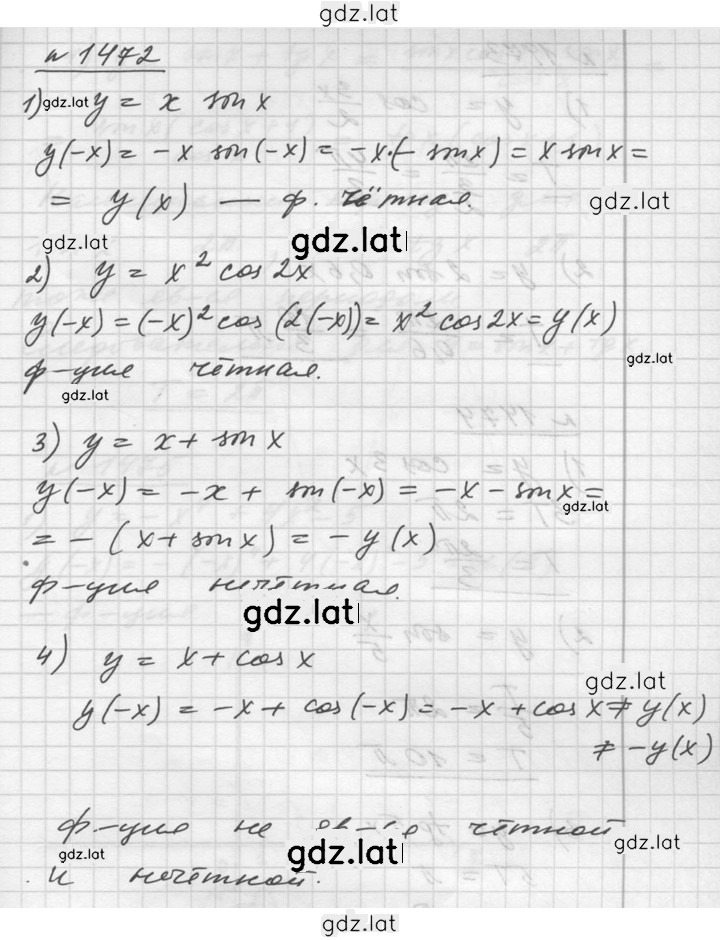 gdz.lat
№ 1472
1) gdz.lat y = x sin x
y(-x) = -x sin(-x) = -x·(-sin x) = x sin x =
= y(x) — ф. чётная.
gdz.lat
gdz.lat
gdz.lat
2) y = x² cos 2x
y(-x) = (-x)² cos (2(-x)) = x² cos 2x = y(x)
gdz.lat
ф-ция чётная.
gdz.lat
3) y = x + sin x
y(-x) = -x + sin(-x) = -x - sin x =
gdz.lat
= - (x + sin x) = -y(x)
ф-ция нечётная.
gdz.lat
4) y = x + cos x
gdz.lat
y(-x) = -x + cos(-x) = -x + cos x ≠ y(x)
≠ -y(x)
ф-ция не чётной
gdz.lat
gdz.lat
gdz.lat
и нечётной.
gdz.lat